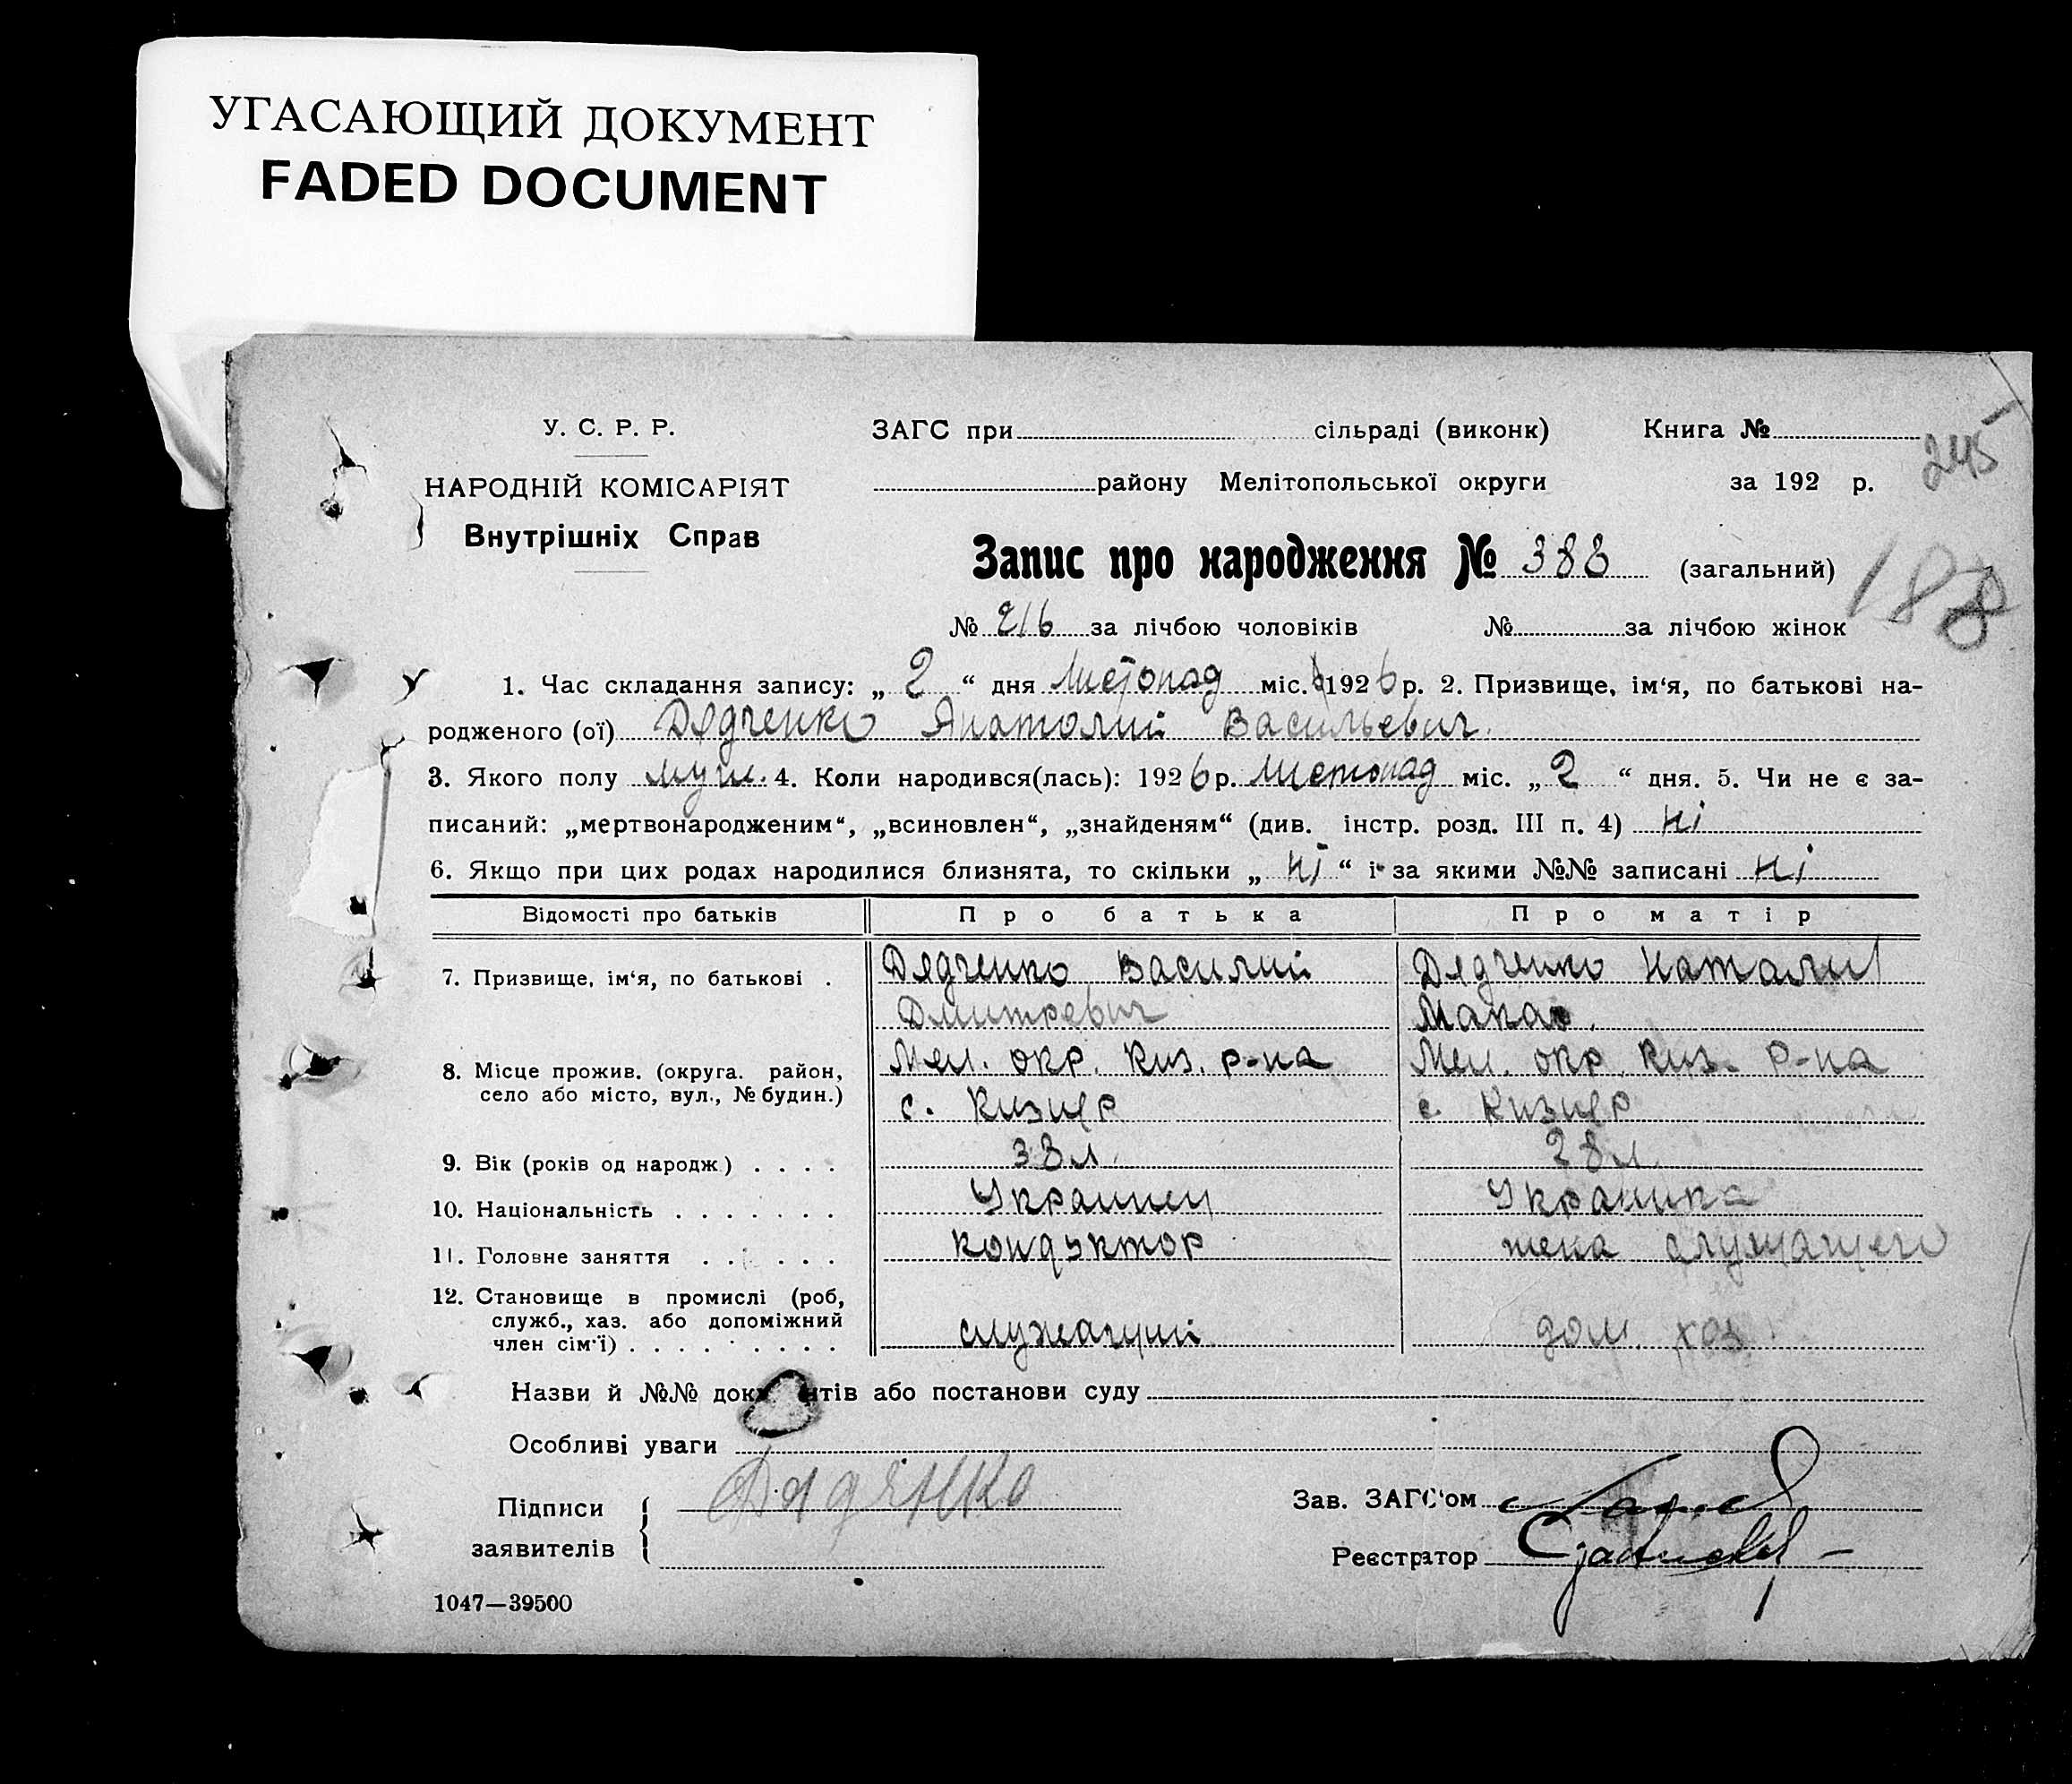 УГАСАЮЩИЙ ДОКУМЕНТ
FADED DOCUMENT
У. С. Р. Р.
НАРОДНІЙ КОМІСАРІЯТ
Внутрішніх Справ
ЗАГС при сільраді (виконк)
Книга №
245
району Мелітопольської округи
за 192 р.
Запис про народження № 388 (загальний)
188
№ 216 за лічбою чоловіків № за лічбою жінок
1. Час складання запису: „ 2 “ дня Листопад міс. 1926 р. 2. Призвище, ім‘я, по батькові на-
родженого (ої) Дядченко Анатолий Васильевич.
3. Якого полу муж. 4. Коли народився(лась): 1926 р. Листопад міс. „ 2 “ дня. 5. Чи не є за-
писаний: „мертвонародженим“, „всиновлен“, „знайденям“ (див. інстр. розд. III п. 4) Ні
6. Якщо при цих родах народилися близнята, то скільки „ Ні “ і за якими №№ записані Ні
Відомості про батьків Про батька Про матір
7. Призвище, ім‘я, по батькові . Дядченко Василий Дядченко Наталия
Дмитревич Макар.
8. Місце прожив. (округа. район, Мел. окр. Киз. р-на Мел. окр. Киз. р-на
село або місто, вул., № будин.) с. Кизияр с. Кизияр
9. Вік (років од народж.) . . . . 38 л. 28 л.
10. Національність . . . . . . . Украинец Украинка
11. Головне заняття . . . . . кондуктор жена служащего
12. Становище в промислі (роб,
служб., хаз. або допоміжний
член сім‘ї) . . . . . . . . . служащий дом. хоз.
Назви й №№ документів або постанови суду
Особливі уваги
Підписи
заявителів
Зав. ЗАГС‘ом
Реєстратор
1047—39500